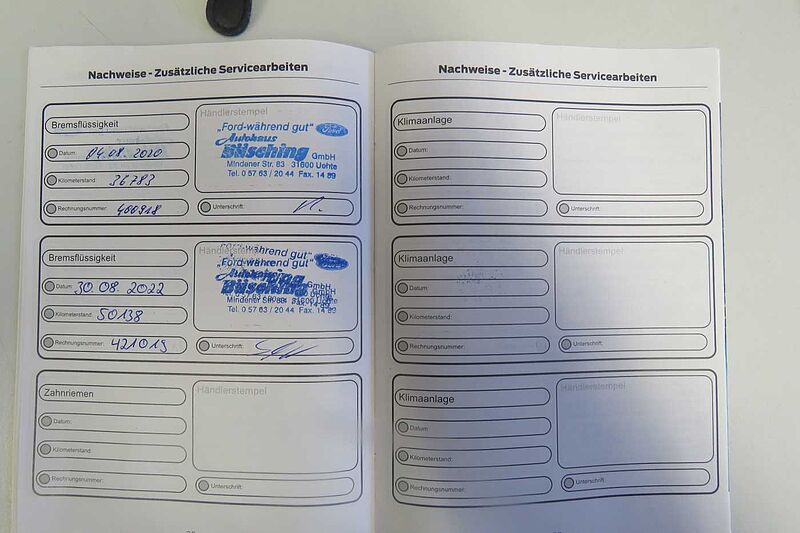 Nachweise - Zusätzliche Servicearbeiten
Bremsflüssigkeit
Datum: 04.08. 2020
Kilometerstand: 36783
Rechnungsnummer: 400918
Händlerstempel
„Ford-während gut"
Ford
Autohaus
Büsching GmbH
Mindener Str. 83 31600 Uchte
Tel. 0 57 63 / 20 44 Fax. 14 89
Unterschrift:
Bremsflüssigkeit
Datum: 30 08. 2022
Kilometerstand: 50138
Rechnungsnummer: 421019
Händlerstempel
„Ford-während gut"
Autohaus
Büsching GmbH
Mindener Str. 83 31600 Uchte
Tel. 0 57 63 / 20 44 Fax. 14 89
Unterschrift:
Zahnriemen
Datum:
Kilometerstand:
Rechnungsnummer:
Händlerstempel
Unterschrift:
Nachweise - Zusätzliche Servicearbeiten
Klimaanlage
Datum:
Kilometerstand:
Rechnungsnummer:
Händlerstempel
Unterschrift:
Klimaanlage
Datum:
Kilometerstand:
Rechnungsnummer:
Händlerstempel
Unterschrift:
Klimaanlage
Datum:
Kilometerstand:
Rechnungsnummer:
Händlerstempel
Unterschrift: